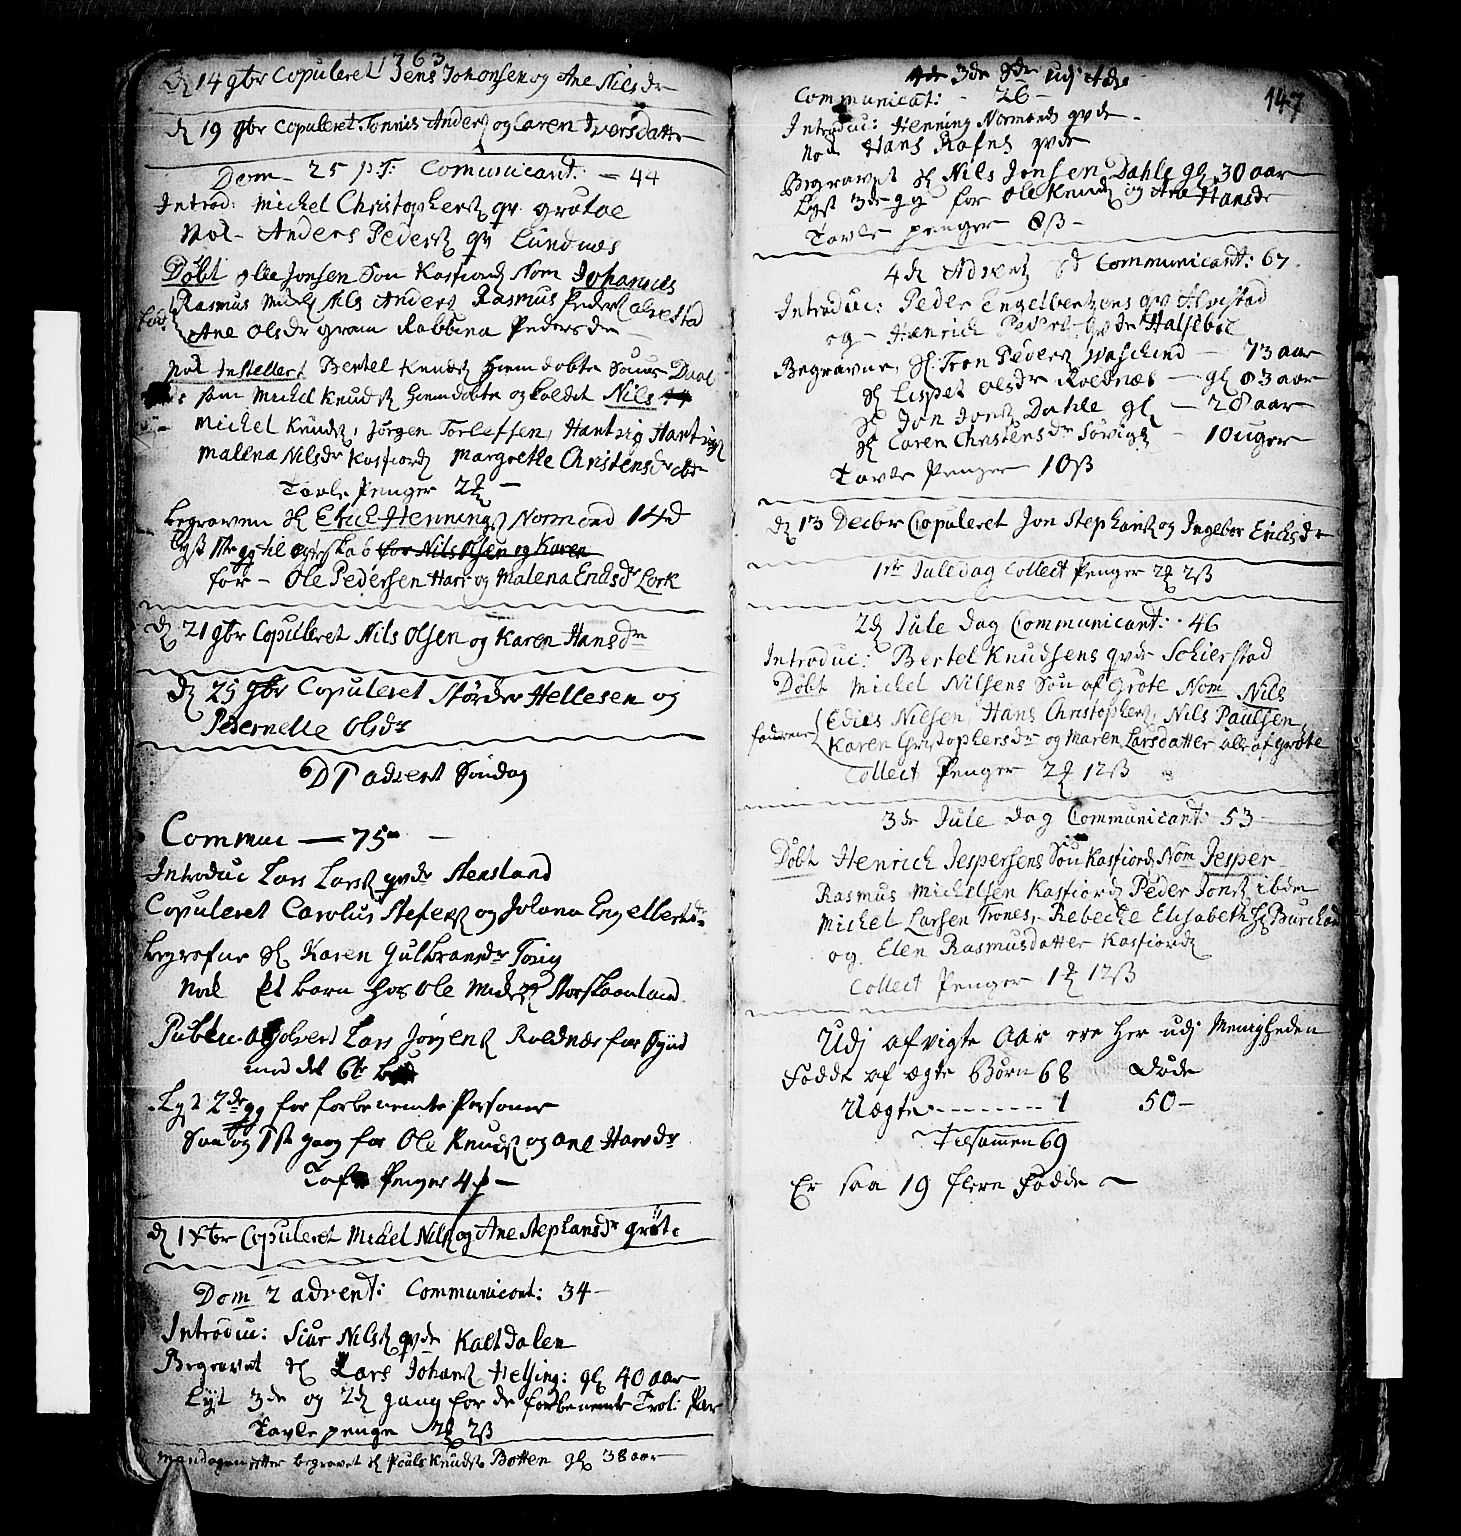 1763
D 14 9br Copuleret Jens Johonsen og Ane Nilsdr
D 19 9br Copuleret Tönnis Anders og Caren Iversdatter
Dom 25 p T: Comunicant: — 44
Introd: Michel Christophers qv. grøtøe
Nok - Anders Peders qv Lundnes
Döbt olle Jonsen Son Kasfiord Nom Johannes
Rasmus Michels Nils Anders Rasmus Peders alvestad
Ane Olsdr gram Rabbina Pedersdr
Nok Instellert Bertel Knuds Hiemdøbte
som Michel Knuds hiemdøbte og kaldet Nils
Michel Knuds, Jörgen Torlefsen, Hantvig Hantvigs
Malena Nilsdr Kasfiord Margrethe Christensdr
Tavle Penger 2
begraven Sl Erich Hennings Normand 14 d
lyst 1ste gg til egteskab for Nils Olsen og Karen
for - Ole Pedersen Harr og Malena Erichsdr Lork
D 21 9br Copuleret Nils Olsen og Karen Hansdr
D 25 9br Copuleret Störcher Hellesen og
Pedernelle Olsdr
D 1 advent Söndag
Commun — 75 —
Introduc Lars Lars qvde Stensland
Copuleret Carolus Stefens og Johana Engelbertsdr
begrafne Sl Karen Gulbransdr Tövig
Nok Et barn hos Ole Michels
Public: absolvert Lars Jörgens Roldnæs for Synd
mod det 6te bud
Lyst 2de gg for forbenemte Personer
Saa og 1ste gang for Ole Knuds og ane Hansdr
Tafle Penger 4
D 1 Xbr Copuleret Michel Nils og Ane Stephansdr grøte
Dom 2 advent: Communicant: 34 —
Introduc: Siur Nils qvde Kaltdalen
Begravet Sl Lars Johans Helsing: gl 40 aar
Lyst 3de og 2d gang for de forbenemte Trol: Par
Tavle penge 2ß
Mandagen efter begravet Sl Pouls Knuds Botten gl 38 aar
147
3de Sdr udj Adv
Communicat: - 26 -
Introduc: Henning Normands qvde -
Nok Hans Rafns qvde
Begravet Sl Nils Jonsen Dahle gl 30 aar
Lyst 3de gg for Ole Knuds og Ane Hansdr
Tavle penger 8ß -
4d Advents Sd Communicant: 67
Introduc: Peder Engelbertsens qv Alvestad
og - Henrich Peders qvde Halseböe
Begravne, Sl: Tron Peders — 73 aar
Sl Lispet Olsdr Roldnæs — gl 83 aar
Sl Jon Jons Dahle gl — 28 aar
Sl Caren Christensdr Sörvig — 10 uger
Tavle Penger 10ß
D 13 Decbr Copuleret Jon Stephans og Ingebor Erichsdr
1ste Juledag Collect Penger 2 2ß
2d Jule dag Communicant: 46
Introduc: Bertel Knudsens qvde Schierstad
Döbt Michel Nilsens Sön af Grøte Nom Nils
faddrene Edies Nielsen, Hans Christophers, Nils Paulsen,
Karen Christophersdr og Maren Larsdatter alle af Grøte
Collect Penger 2 12ß
3de Jule dag Communicant: 53
Döbt Henrich Jespersens Sön Kasfiord Nom Jesper
Rasmus Michelsen Kasfiord Peder Jons ibdm
Michel Larsen Trones, Rebecke Elisabeth
og Elen Rasmusdatter Kasfiord
Collect Penger 1 12ß
Udj afvigte Aar ere her udj Menigheden
Fødde af ægte Börn 68 Døde
Uægte - - - - 1 50 —
Tilsamen 69
Er saa 19 flere Fødde —